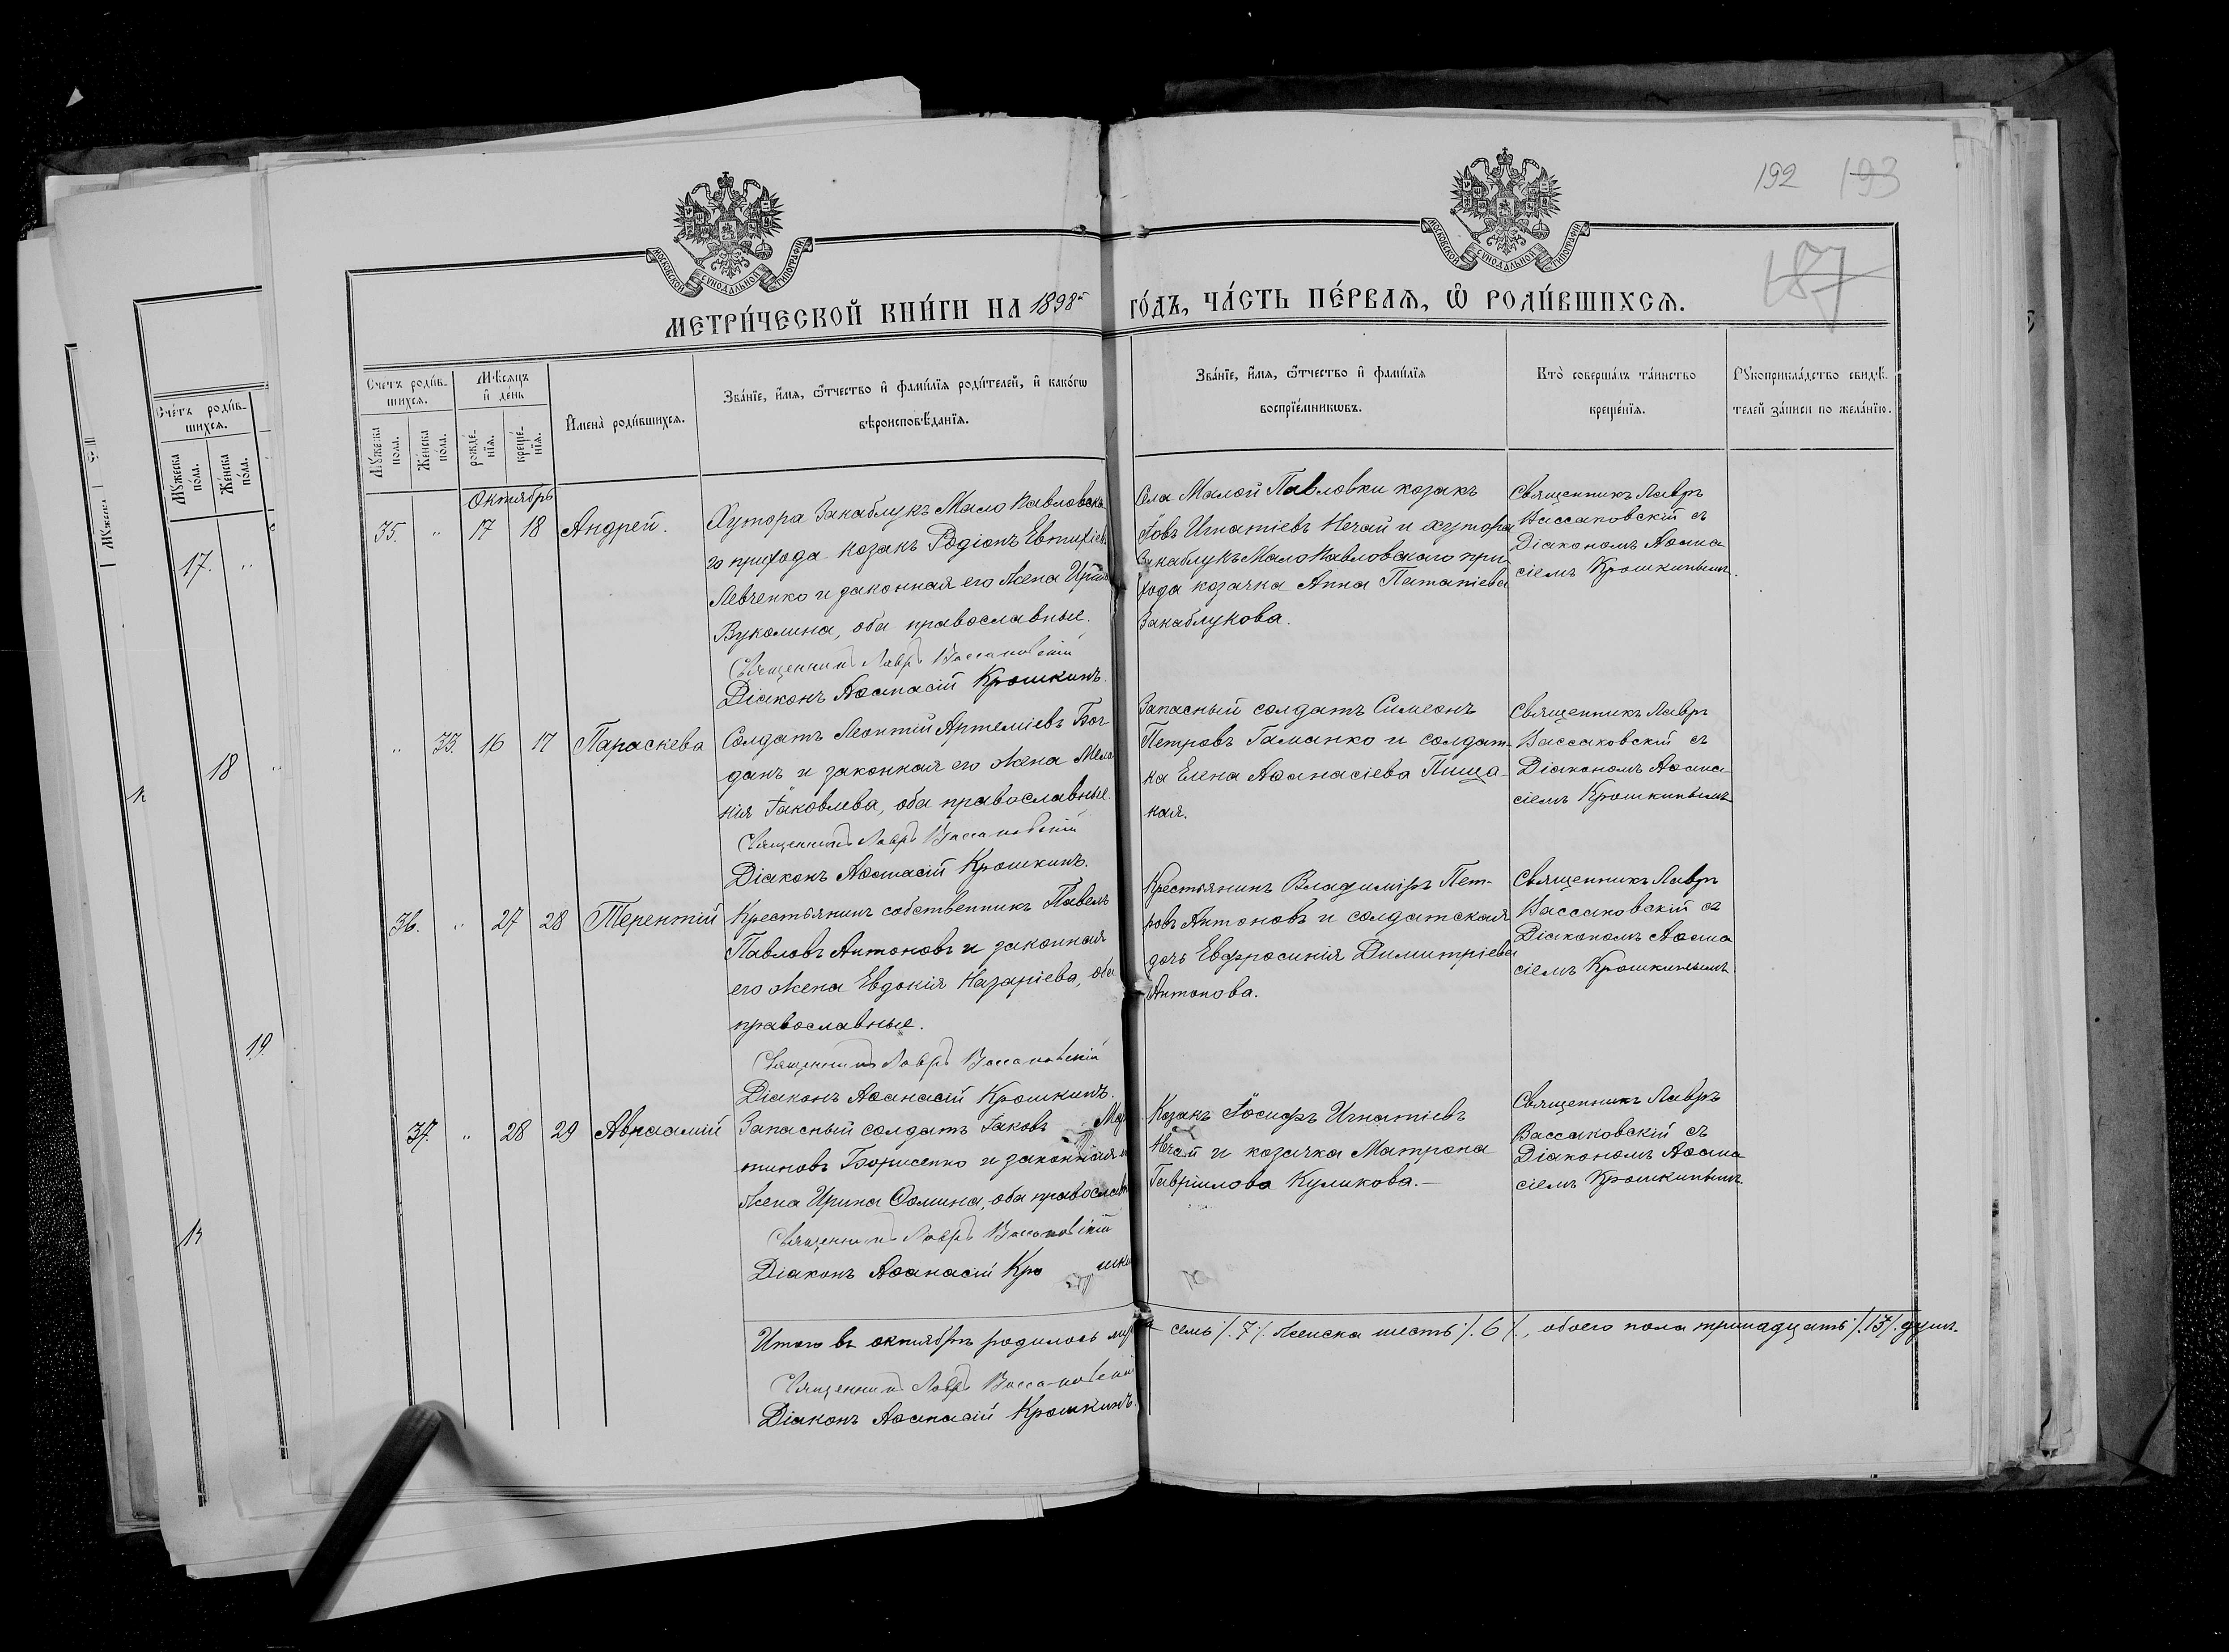 192 193
187
МОСКОВСКОЙ СѴНОДАЛЬНОЙ ТИПОГРАФІИ
МОСКОВСКОЙ СѴНОДАЛЬНОЙ ТИПОГРАФІИ
МЕТРИ́ЧЕСКОЙ КНИ́ГИ НА 1898й ГО́ДЪ, ЧА́СТЬ ПЕ́РВАѦ, Ѽ РОДИ́ВШИХСѦ.
Счетъ роди́в-
шихсѧ.
Мꙋ́жеска
пола.
Же́нска
по́ла.
Мѣ́сѧцъ
и҆ де́нь
рожде́-
нїѧ.
креще́-
нїѧ.
И҆мена̀ роди́вшихсѧ.
Зва́нїе, и҆́мѧ, ѻ҆́тчество и҆ фами́лїѧ роди́телей, и҆ како́гѡ
вѣроисповѣ́данїѧ.
Зва́нїе, и҆́мѧ, ѻ҆́тчество и҆ фами́лїѧ
воспрїе́мникѡвъ.
Кто̀ соверша́лъ та́инство
креще́нїѧ.
Рꙋкоприкла́дство свидѣ́-
телей за́писи по жела́нїю.
Счетъ роди́в-
шихсѧ.
Мꙋ́жеска
по́ла.
Же́нска
по́ла.
17. "
18 "
19.
Октябрь
35. " 17 18 Андрей.
Хутора Закаблукъ Мало Павловска-
го прихода козакъ Родіонъ Евтихіевъ
Левченко и законная его жена Ирина
Вуколина, оба православные.
Священникъ Лавръ Вассаковскій
Діаконъ Аѳанасій Крошкинъ.
Села Малой Павловки козакъ
Іовъ Игнатіевъ Нечай и хутора
Закаблукъ Мало Павловскаго при-
хода козачка Анна Патапіева
Закаблукова.
Священникъ Лавръ
Вассаковскій съ
Діакономъ Аѳана
сіемъ Крошкинымъ.
" 35. 16 17 Параскева
Солдатъ Леонтій Артеміевъ Бог-
данъ и законная его жена Мела
нія Іаковлева, оба православные.
Священникъ Лавръ Вассаковскій
Діаконъ Аѳанасій Крошкинъ.
Запасный солдатъ Симеонъ
Петровъ Гаманко и солдат-
ка Елена Аѳанасіева Пища-
ная.
Священникъ Лавръ
Вассаковскій съ
Діакономъ Аѳана-
сіемъ Крошкинымъ
36. " 27 28 Терентій
Крестьянинъ собственникъ Павелъ
Павловъ Антоновъ и законная
его жена Евдокія Назаріева, оба
православные.
Священникъ Лавръ Вассаковскій
Діаконъ Аѳанасій Крошкинъ.
Крестьянинъ Владиміръ Пет-
ровъ Антоновъ и солдатская
дочь Евфросинія Димитріева
Антонова.
Священникъ Лавръ
Вассаковскій съ
Діакономъ Аѳана
сіемъ Крошкинымъ
37. " 28 29 Авраамій
Запасный солдатъ Іаковъ Мар
тиновъ Борисенко и законная
жена Ирина Ѳомина, оба православ
Священникъ Лавръ Вассаковскій
Діаконъ Аѳанасій Крошки
Козакъ Іосифъ Игнатіевъ
Нечай и козачка Матрона
Гавріилова Куликова.—
Священникъ Лавръ
Вассаковскій съ
Діакономъ Аѳана
сіемъ Крошкинымъ.
Итого въ октябрѣ родилось муж семь /.7/. женска шесть /.6/., обоего пола тринадцать /.13/. душъ.
Священникъ Лавръ Вассаковскій
Діаконъ Аѳанасій Крошкинъ.